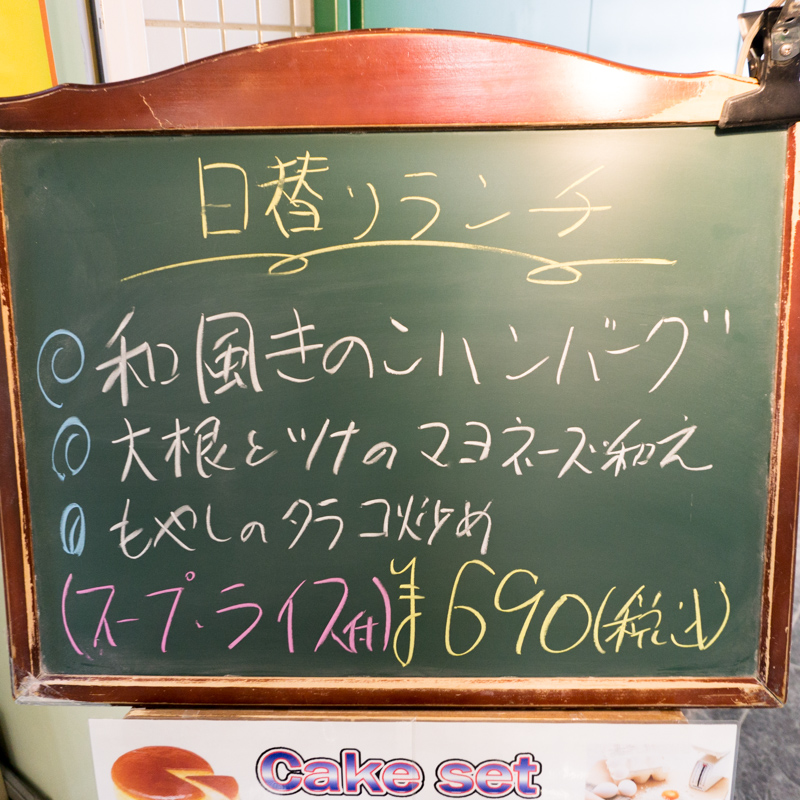 日替りランチ
和風きのこハンバーグ
大根とツナのマヨネーズ和え
もやしのタラコ炒め
(スープ・ライス付)¥690(税込)
Cake set